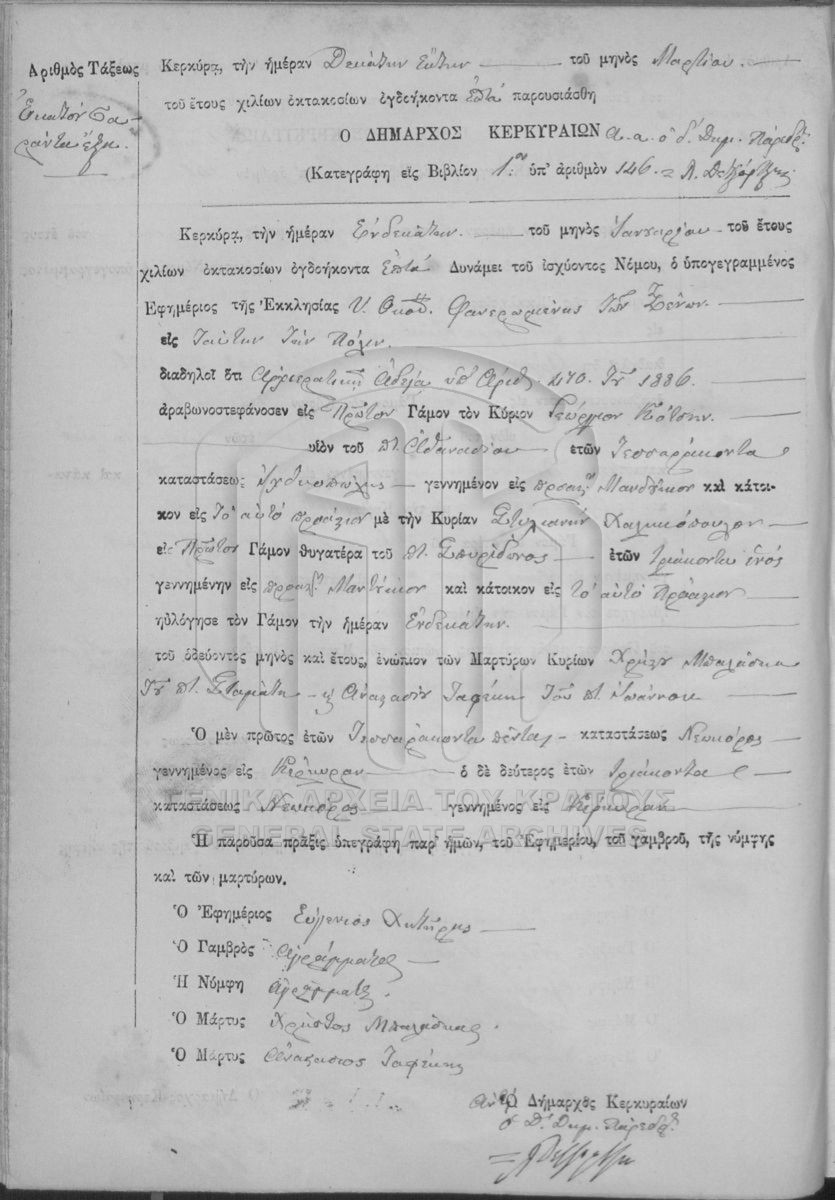 Ἀριθμὸς Τάξεως
Ἑκατὸν Σα-
ράντα ἕξη.
Κερκύρᾳ, τὴν ἡμέραν Δεκάτην Ἕκτην τοῦ μηνὸς Μαρτίου.
τοῦ ἔτους χιλίων ὀκτακοσίων ὀγδοήκοντα ἑπτὰ παρουσιάσθη
Ὁ ΔΗΜΑΡΧΟΣ ΚΕΡΚΥΡΑΙΩΝ α. α. ὁ δ. Δημ. Πάρεδρ.
(Κατεγράφη εἰς Βιβλίον 1.ον ὑπ' ἀριθμὸν 146.
Κερκύρᾳ, τὴν ἡμέραν Ἑνδεκάτην. τοῦ μηνὸς Ἰανουαρίου τοῦ ἔτους
χιλίων ὀκτακοσίων ὀγδοήκοντα ἑπτὰ Δυνάμει τοῦ ἰσχύοντος Νόμου, ὁ ὑπογεγραμμένος
Ἐφημέριος τῆς Ἐκκλησίας Υ. Θκου Φανερωμένης τῶν Ξένων.
εἰς ταύτην τὴν Πόλιν.
διαδηλοῖ ὅτι Ἀρχιερατικῇ Ἀδείᾳ ὑπ' Ἀριθ. 470. τοῦ 1886
ἀραβωνοστεφάνοσεν εἰς Πρῶτον Γάμον τὸν Κύριον Γεώργιον Κότσην.
υἱὸν τοῦ π. Ἀθανασίου ἐτῶν τεσσαράκοντα
καταστάσεως ἰχθυοπώλης γεννημένον εἰς προάστ. Μανδούκιον καὶ κάτοι-
κον εἰς τὸ αὐτὸ προάστιον μὲ τὴν Κυρίαν Στυλιανὴν Χαλικιόπουλον
εἰς Πρῶτον Γάμον θυγατέρα τοῦ π. Σπυρίδωνος ἐτῶν τριάκοντα ἑνός
γεννημένην εἰς προάστ. Μαντούκιον καὶ κάτοικον εἰς τὸ αὐτὸ Προάστιον
ηὐλόγησε τὸν Γάμον τὴν ἡμέραν Ἑνδεκάτην.
τοῦ ὁδεύοντος μηνὸς καὶ ἔτους, ἐνώπιον τῶν Μαρτύρων Κυρίων Χρῆστου Μπαλάσκα
τοῦ π. Σταμάτη κ Ἀναστασίου Ταφέκη τοῦ π. Ἰωάννου
Ὁ μὲν πρῶτος ἐτῶν τεσσαράκοντα πέντε καταστάσεως Νεωκόρος
γεννημένος εἰς Κέρκυραν ὁ δὲ δεύτερος ἐτῶν τριάκοντα
καταστάσεως Νεωκόρος γεννημένος εἰς Κέρκυραν
ΓΕΝΙΚΑ ΑΡΧΕΙΑ ΤΟΥ ΚΡΑΤΟΥΣ
GENERAL STATE ARCHIVES
Ἡ παροῦσα πρᾶξις ὑπεγράφη παρ' ἡμῶν, τοῦ Ἐφημερίου, τοῦ γαμβροῦ, τῆς νύμφης
καὶ τῶν μαρτύρων.
Ὁ Ἐφημέριος Εὐγένιος Χυτήρης
Ὁ Γαμβρὸς Ἀγράμματος
Ἡ Νύμφη Ἀγράμματος.
Ὁ Μάρτυς Χρῆστος Μπαλάσκας.
Ὁ Μάρτυς Ἀναστάσιος Ταφέκης
Ὁ Δήμαρχος Κερκυραίων
ὁ Δ. Δημ. Πάρεδρ.